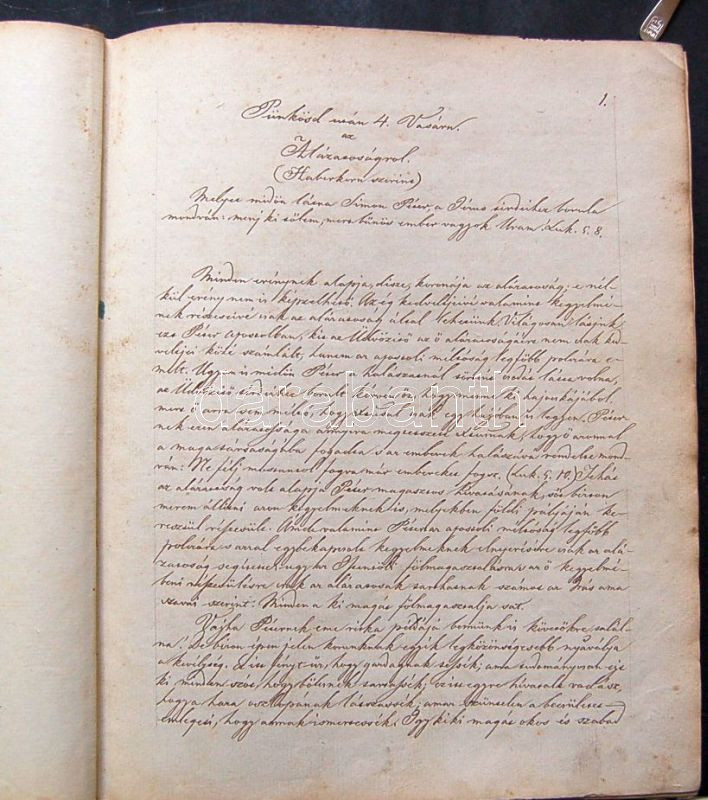 1.
Pünkösd után 4. Vasárn.
az
Alázatosságrol.
(Haberkorn szerint)
Melyet midőn látna Simon Péter, a Jézus térdeihez borula
mondván: menj ki tőlem, mert bűnös ember vagyok Uram! Luk. 5. 8.
Minden erénynek alapja, dísze, koronája az alázatosság; e nél-
kül erény nem is képzelhető. Az ég kedveltjeivé valamint kegyelmé-
nek részeseivé csak az alázatosság által lehetünk. Világosan látjuk
ezt Péter apostolban, kit az Üdvözítő az ő alázatosságáért nem csak ked-
veltjei közé számlált, hanem az apostoli méltóság legfőbb polczára e-
melt. Ugyan is midőn Péter a halászatnál történt csodát látta volna,
az Üdvözítő térdeihez borult kérvén őt, hogy menne ki hajócskájából,
mert ő arra sem méltó, hogy Jézussal csak egy hajóban is legyen. Péter-
nek ezen alázatossága annyira megtetszett az Urnak, hogy ő azonnal
a maga társaságába fogadta s az emberek halászává rendelte mond-
ván: Ne félj mostantól fogva már embereket fogsz. (Luk. 5. 10.) Tehát
az alázatosság volt alapja Péter magasztos hivatásának, sőt bizton
merem állítani azon kegyelmeknek is, melyekben földi pályáján ke-
resztül részesült. Ámde valamint Pétert az apostoli méltóság legfőbb
polczára s azzal egybekapcsolt kegyelmeknek elnyerésére csak az alá-
zatosság segítette, ugy az Istentőli fölmagasztalásra s az ő kegyelmé-
beni részesülésre csak az alázatosak tarthatnak számot az Írás ama
szavai szerint: Minden a ki magát fölmagasztalja sat.
Vajha Péternek eme ritka példája bennünk is követőkre talál-
na! De bizon épen jelen korunknak egyik legközönségesebb nyavalyája
a kevélység. Ez itt fényt űz, hogy gazdagnak tessék; ama tudományosan ejt
ki minden szót, hogy bölcsnek tartassék; ez itt egyre hivatalt vadász,
hogy a haza oszlopának láttassék; amaz szüntelen a becsületet
emlegeti, hogy annak ismertessék. Igy kiki magát okos és szabad
darabanth